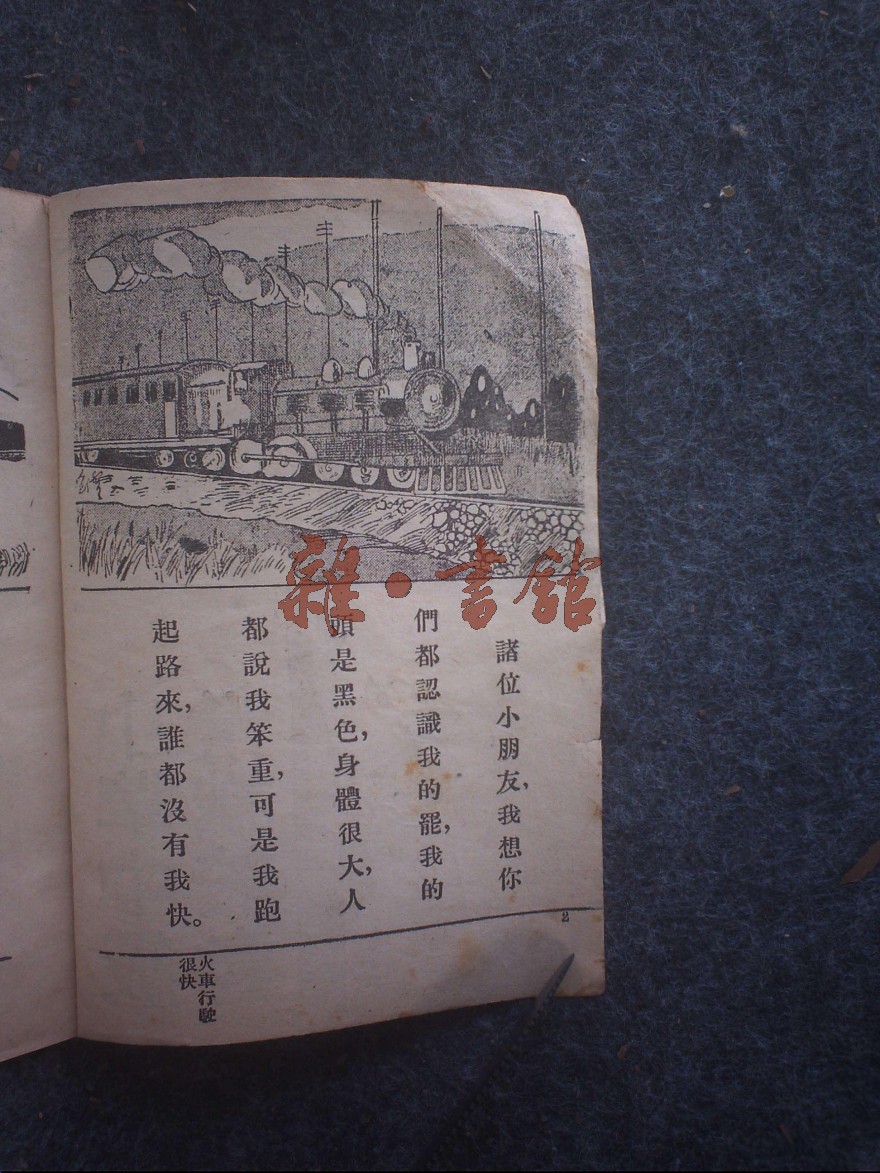 諸位小朋友，我想你
們都認識我的罷，我的
頭是黑色，身體很大，人
都說我笨重，可是我跑
起路來，誰都沒有我快。
2
火車行駛
很快
雜·書館